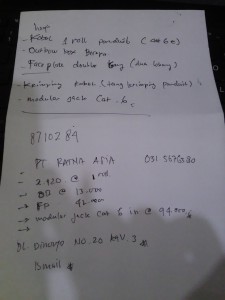 - Kabel 1 roll panduit (cat 6e)
- Outbow box
- Face plate double (dua lubang)
- Krimping kabel (tang krimping panduit)
- modular jack cat. 6.
8710284
PT RATNA ASIA 031
- 2.920 @ 1 roll
- @ 13.000
→ FP 42.000
→ modular jack cat 6 in @ 94.000
JL NO. 20 KAV. 3